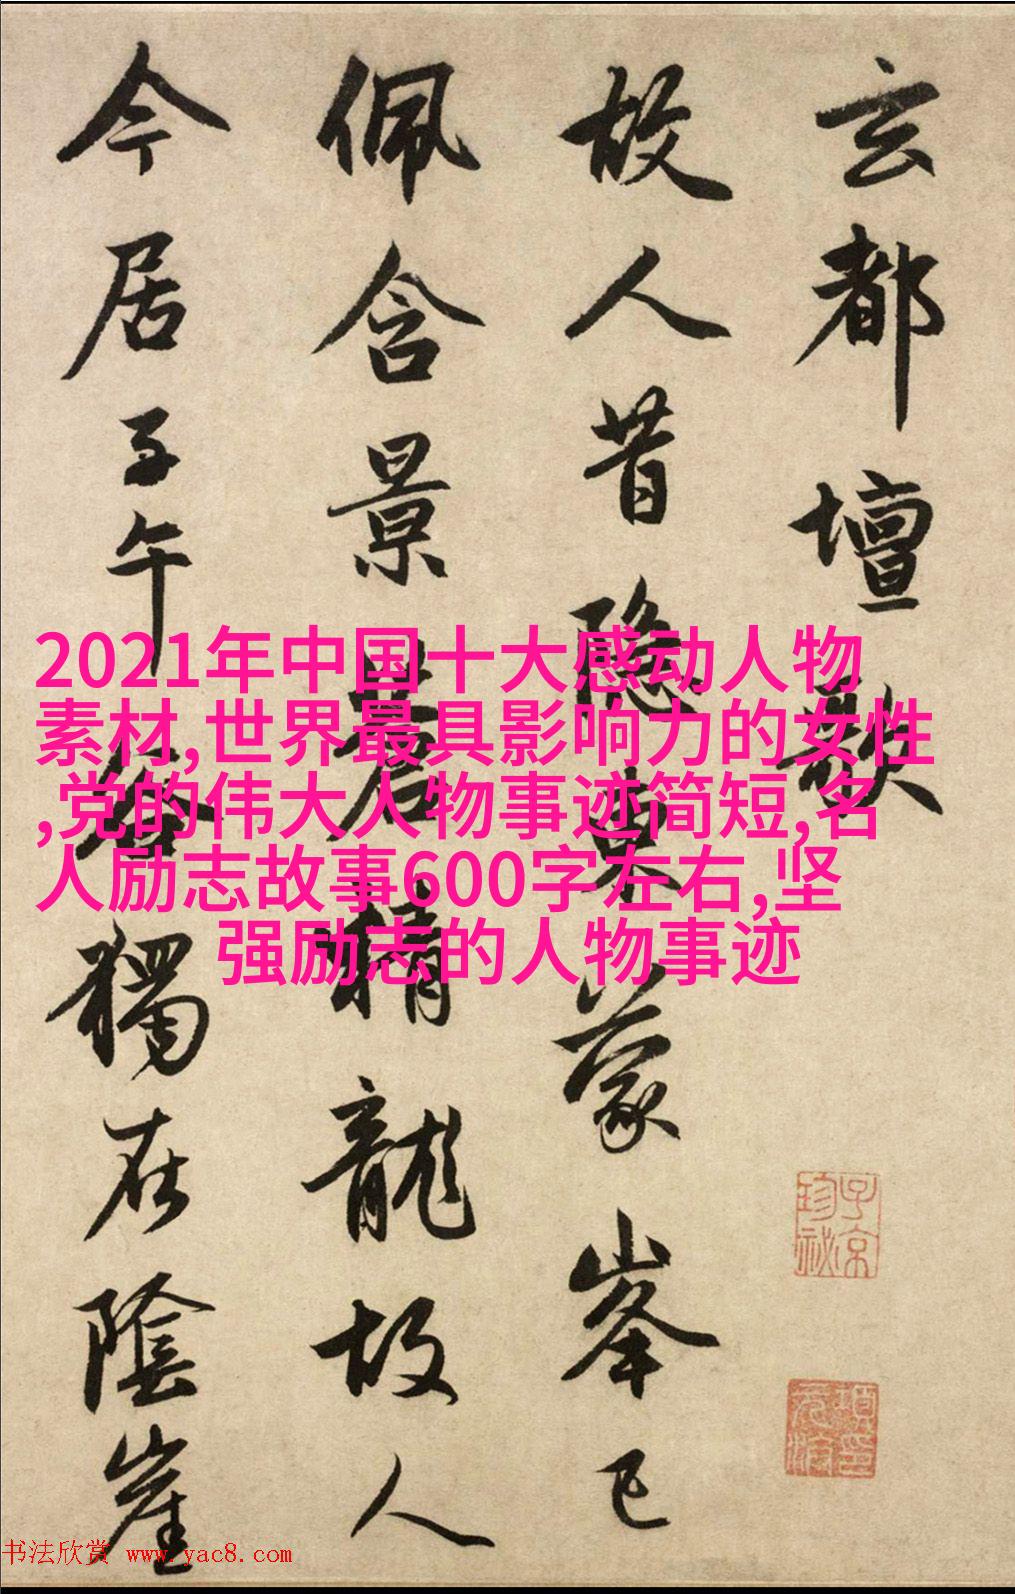 玄都壇歌
故人昔隱東蒙峯已
佩含景蒼精龍故人
今居子午谷獨在陰崖
2021年中国十大感动人物
素材,世界最具影响力的女性
,党的伟大人物事迹简短,名
人励志故事600字左右,坚
强励志的人物事迹
子京珍祕
项元汴印
书法欣赏 www.yac8.com